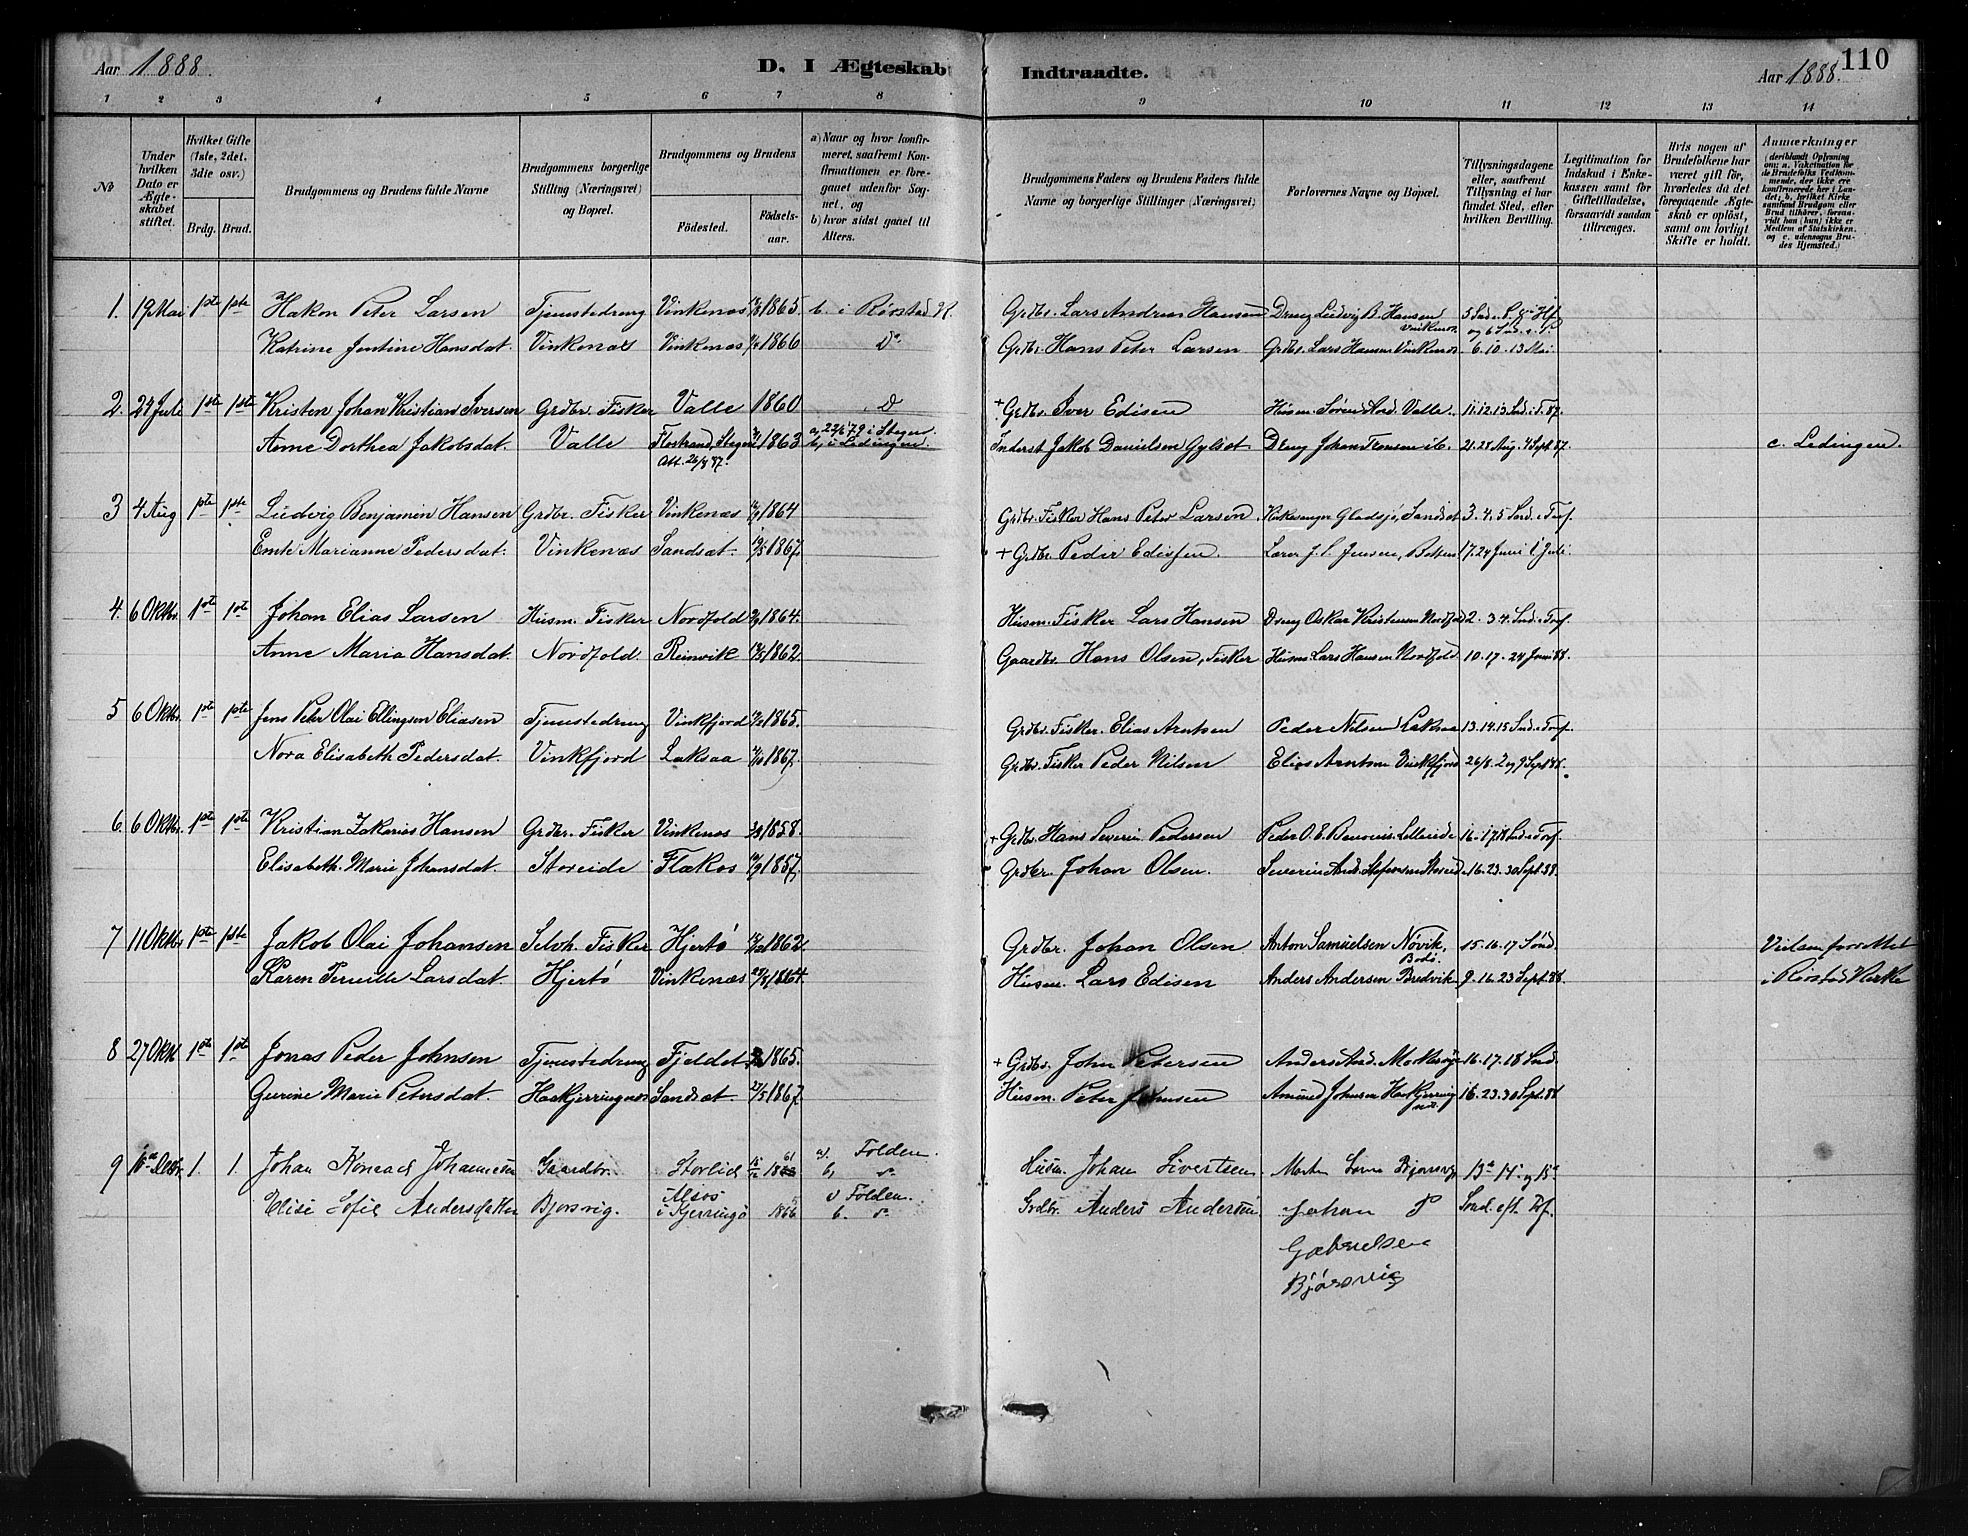 110
Aar 1888.
D. I Ægteskab Indtraadte.
Aar 1888.
1 2 3 4 5 6 7 8 9 10 11 12 13 14
No
Under hvilken Dato er Ægteskabet stiftet.
Hvilket Gifte (1ste, 2det, 3die osv.)
Brdg. Brud.
Brudgommens og Brudens fulde Navne
Brudgommens borgerlige Stilling (Næringsvei) og Bopæl.
Brudgommens og Brudens
Fødested.
Fødselsaar.
a) Naar og hvor konfirmeret, saafremt Konfirmationen er foregaaet udenfor Sognet, og
b) hvor sidst gaaet til Alters.
Brudgommens Faders og Brudens Faders fulde Navne og borgerlige Stillinger (Næringsvei)
Forlovernes Navne og Bopæl.
Tillysningsdagene eller, saafremt Tillysning ei har fundet Sted, efter hvilken Bevilling.
Legitimation for Indskud i Enkekassen samt for Giftetilladelse, forsaavidt saadan tiltrænges.
Hvis nogen af Brudefolkene har været gift før, hvorledes da det foregaaende Ægteskab er opløst, samt om lovligt Skifte er holdt.
Anmærkninger
(deriblandt Oplysning om: a. Vakcination for de Brudefolks Vedkommende, der ikke ere konfirmerede her i Landet; b. hvilket Kirkesamfund Brudgom eller Brud tilhører, forsaavidt han (hun) ikke er Medlem af Statskirken, og c. udensogns Brudes Hjemsted.)
1. 19 Mai 1ste 1ste Hakon Peter Larsen Tjenestedreng Vinkenæs 1865. b. i Rørstad K. Grdbr. Lars Andreas Hansen Dreng Ludvig B. Hansen Vinkenæs
Katrine Jentine Hansdat. Vinkenæs Vinkenæs 1866 Do Grdbr. Hans Peter Larsen Grdbr. Lars Hansen Vinkenæs 6. 10. 13 Mai.
2. 24 Juli 1ste 1ste Kristen Johan Kristian Iversen Grdbr. Fisker Valle 1860 D + Grdbr. Iver Edisen Husm. Søren And. Valle. 11. 12. 13 Snd. e. T. 87.
Anne Dorthea Jakobsdat. Valle Flostrand, Stegen 1863 a, 22/6 79 i Stegen. b, i Lødingen. Inderst Jakob Danielsen Dreng Johan 21. 28 Aug. 4 Sept 87. c. Lødingen.
Att. 26/8 87.
3 4 Aug 1ste 1ste Ludvig Benjamin Hansen Grdbr. Fisker Vinkenæs 1864 Grdbr. Fisker Hans Peter Larsen. Kirkesanger Gladsjø, Sandset 3. 4. 5 Snd. e Tref.
Emte Marianne Pedersdat. Vinkenæs Sandsæt. 1867. + Grdbr. Peder Edissen. Lærer J. P. Jensen, 17. 24 Juni 1 Juli.
4. 6 Oktbr. 1ste 1ste Johan Elias Larsen Husm. Fisker Nordfold 1864. Husm. Fisker Lars Hansen Dreng Oskar Kristensen Nordfold 2. 3 4. Snd. e Tref.
Anne Maria Hansdat. Nordfold. Reinvik 1862. Gaardbr. Hans Olsen, Fisker Husm. Lars Hansen Nordfold 10. 17. 24 Juni 88.
5 6 Oktbr. 1ste 1ste Jens Peter Olai Ellingsen Eliasen Tjenestedreng Vinkfjord 1865. Grdbr. Fisker. Elias Arntsen Peder Nilsen Laksaa 13. 14. 15 Snd. e Tref.
Nora Elisabeth Pedersdat. Vinkfjord Laksaa 1867. Grdbr. Fisker Peder Nilsen Elias Arntsen Vinkfjord 26/8. 2 og 9 Sept 88.
6. 6 Oktbr. 1ste 1ste Kristian Zakarias Hansen Grdbr. Fisker Vinkenæs 1858. + Grdbr. Hans Severin Pedersen Peder O. E. 16. 17. 18 Snd e Tref.
Elisabeth Marie Johansdat. Storeide Flakos 1857. Grdbr. Johan Olsen. Severin And. 16. 23. 30 Sept. 88.
7 11 Oktbr 1ste 1ste Jakob Olai Johansen Selvh. Fisker Hjertø 1862. Grdbr. Johan Olsen Anton Samuelsen Nøvik, Bodø. 15. 16. 17 Sønd. Vielsen forrettet
Karen Pernille Larsdat. Hjertø Vinkenæs 1864. Husm. Lars Edisen Anders Andersen Bredvik 9. 16. 23 Sept. 88. i Rørstad Kirke
8 27 Oktbr 1ste 1ste Jonas Peder Johnsen Tjenestedreng Fjeldet 1865. + Grdbr. John Petersen Anders And. 16. 17. 18 Snd.
Gurine Marie Petersdat. Haakjerringnes Sandsæt 27/5 1867. Husm. Peter Johnsen Amund Johnsen Haakjerringnæs. 16. 23. 30 Sept. 88
9 Decbr. 1. 1. Johan Konrad Johannesen Gaardbr. Storlid 1861 a. Folden. b, do Husm. Johan Sivertsen Bjørsvig
Elise Sofie Andersdatter Bjørsvig. Alsos i Kjerringø 1866 Folden. b. do Grdbr. Anders Andersen Johan P Sønd. eft. Trf.
Gabrielsen
Bjørsvig